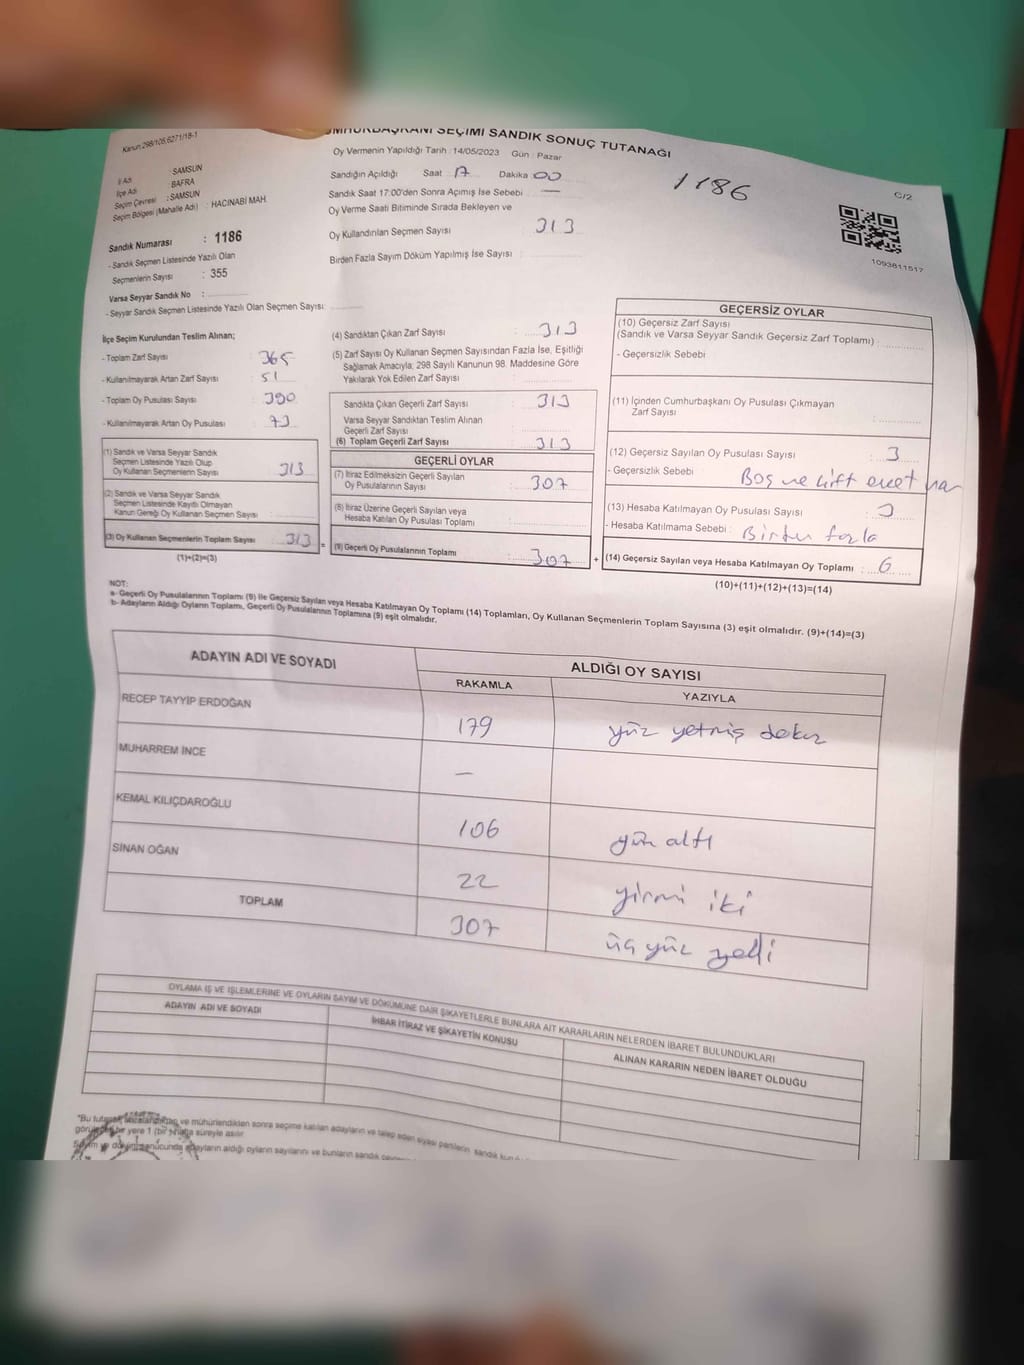 Kanun:298/105,6271/18-1
CUMHURBAŞKANI SEÇİMİ SANDIK SONUÇ TUTANAĞI
Oy Vermenin Yapıldığı Tarih : 14/05/2023 Gün : Pazar
1186
C/2
İl Adı : SAMSUN
İlçe Adı : BAFRA
Seçim Çevresi : SAMSUN
Seçim Bölgesi (Mahalle Adı) : HACINABİ MAH.
Sandığın Açıldığı Saat 17 Dakika 00
Sandık Saat 17:00'den Sonra Açımış İse Sebebi : —
Oy Verme Saati Bitiminde Sırada Bekleyen ve
Oy Kullandırılan Seçmen Sayısı : 313
Birden Fazla Sayım Döküm Yapılmış İse Sayısı :
1093811517
Sandık Numarası : 1186
- Sandık Seçmen Listesinde Yazılı Olan
Seçmenlerin Sayısı : 355
Varsa Seyyar Sandık No :
- Seyyar Sandık Seçmen Listesinde Yazılı Olan Seçmen Sayısı:
İlçe Seçim Kurulundan Teslim Alınan;
- Toplam Zarf Sayısı : 365
- Kullanılmayarak Artan Zarf Sayısı : 51
- Toplam Oy Pusulası Sayısı : 390
- Kullanılmayarak Artan Oy Pusulası : 73
(1) Sandık ve Varsa Seyyar Sandık
Seçmen Listesinde Yazılı Olup
Oy Kullanan Seçmenlerin Sayısı : 313
(2) Sandık ve Varsa Seyyar Sandık
Seçmen Listesinde Kayıtlı Olmayan
Kanun Gereği Oy Kullanan Seçmen Sayısı :
(3) Oy Kullanan Seçmenlerin Toplam Sayısı : 313 =
(1)+(2)=(3)
(4) Sandıktan Çıkan Zarf Sayısı : 313
(5) Zarf Sayısı Oy Kullanan Seçmen Sayısından Fazla İse, Eşitliği
Sağlamak Amacıyla, 298 Sayılı Kanunun 98. Maddesine Göre
Yakılarak Yok Edilen Zarf Sayısı :
Sandıkta Çıkan Geçerli Zarf Sayısı : 313
Varsa Seyyar Sandıktan Teslim Alınan
Geçerli Zarf Sayısı :
(6) Toplam Geçerli Zarf Sayısı : 313
GEÇERLİ OYLAR
(7) İtiraz Edilmeksizin Geçerli Sayılan
Oy Pusulalarının Sayısı : 307
(8) İtiraz Üzerine Geçerli Sayılan veya
Hesaba Katılan Oy Pusulası Toplamı :
(9) Geçerli Oy Pusulalarının Toplamı : 307 +
GEÇERSİZ OYLAR
(10) Geçersiz Zarf Sayısı
(Sandık ve Varsa Seyyar Sandık Geçersiz Zarf Toplamı) :
- Geçersizlik Sebebi
(11) İçinden Cumhurbaşkanı Oy Pusulası Çıkmayan
Zarf Sayısı :
(12) Geçersiz Sayılan Oy Pusulası Sayısı : 3
- Geçersizlik Sebebi : Boş ve çift evet var
(13) Hesaba Katılmayan Oy Pusulası Sayısı : 3
- Hesaba Katılmama Sebebi : Birden fazla
(14) Geçersiz Sayılan veya Hesaba Katılmayan Oy Toplamı : 6
(10)+(11)+(12)+(13)=(14)
NOT:
a- Geçerli Oy Pusulalarının Toplamı (9) ile Geçersiz Sayılan veya Hesaba Katılmayan Oy Toplamı (14) Toplamları, Oy Kullanan Seçmenlerin Toplam Sayısına (3) eşit olmalıdır. (9)+(14)=(3)
b- Adayların Aldığı Oyların Toplamı, Geçerli Oy Pusulalarının Toplamına (9) eşit olmalıdır.
ADAYIN ADI VE SOYADI
ALDIĞI OY SAYISI
RAKAMLA YAZIYLA
RECEP TAYYİP ERDOĞAN 179 yüz yetmiş dokuz
MUHARREM İNCE —
KEMAL KILIÇDAROĞLU 106 yüz altı
SİNAN OĞAN 22 yirmi iki
TOPLAM 307 üç yüz yedi
OYLAMA İŞ VE İŞLEMLERİNE VE OYLARIN SAYIM VE DÖKÜMÜNE DAİR ŞİKAYETLERLE BUNLARA AİT KARARLARIN NELERDEN İBARET BULUNDUKLARI
ADAYIN ADI VE SOYADI
İHBAR İTİRAZ VE ŞİKAYETİN KONUSU
ALINAN KARARIN NEDEN İBARET OLDUĞU
*Bu tutanak ve mühürlendikten sonra seçime katılan adayların ve talep eden siyasi partilerin sandık
bir yere 1 (bir) hafta süreyle asılır.
adayların aldığı oyların sayılarını ve bunların sandık